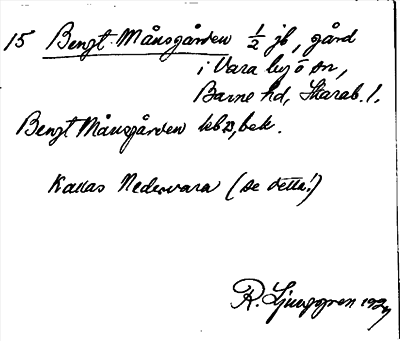 15 Bengt-Månsgården ½ jb, gård
i Vara by o sn,
Barne hd, Skarab. l.
Bengt Månsgården kb 23, bek.
Kallas Nedervara (se detta!)
R. Ljunggren